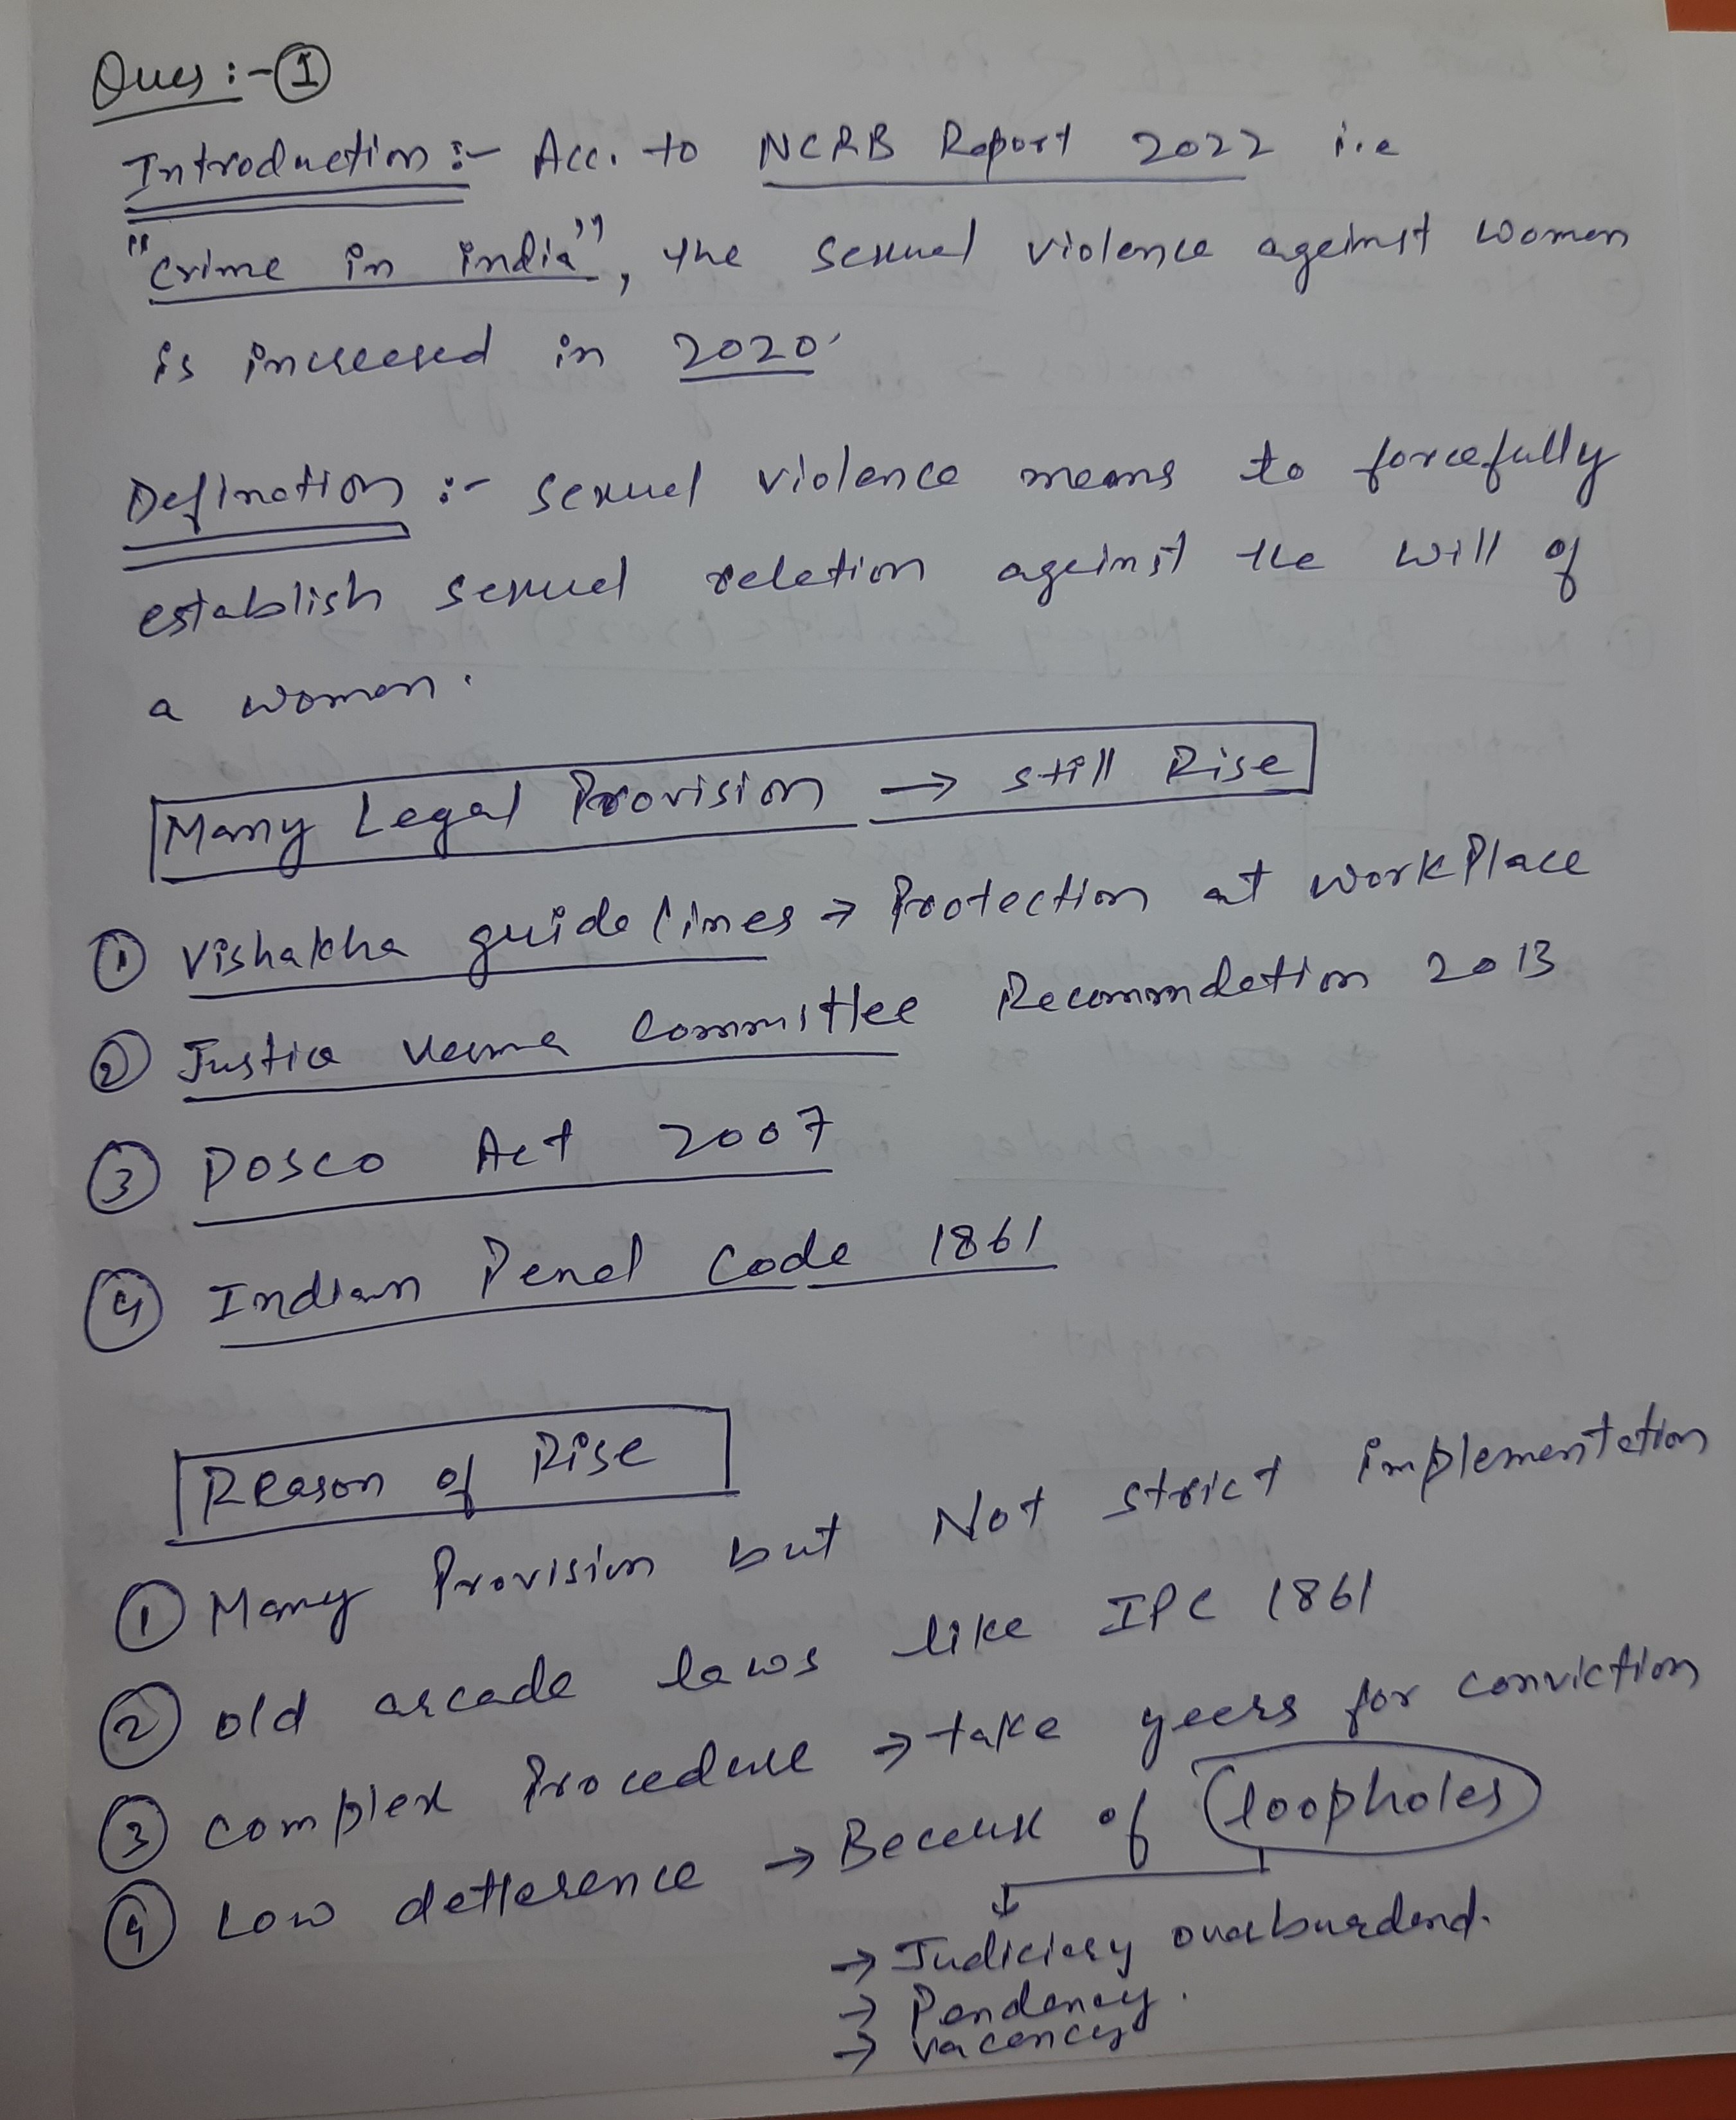 Ques :- ①
Introduction :- Acc. to NCRB Report 2022 i.e
"crime in india", the sexual violence against women
is increased in 2020.
Defination :- sexual violence means to forcefully
establish sexual relation against the will of
a women.
Many Legal Provision → still Rise
① Vishakha guidelines → Protection at workPlace
② Justice Verma Committee Recommdation 2013
③ POSCO Act 2007
④ Indian Penal Code 1861
Reason of Rise
① Many Provision but Not strict implementation
② old arcade laws like IPC 1861
③ complex Procedure → take years for conviction
④ Low detterence → Because of loopholes
→ Judiciary overburdend.
→ Pendency.
→ vacency